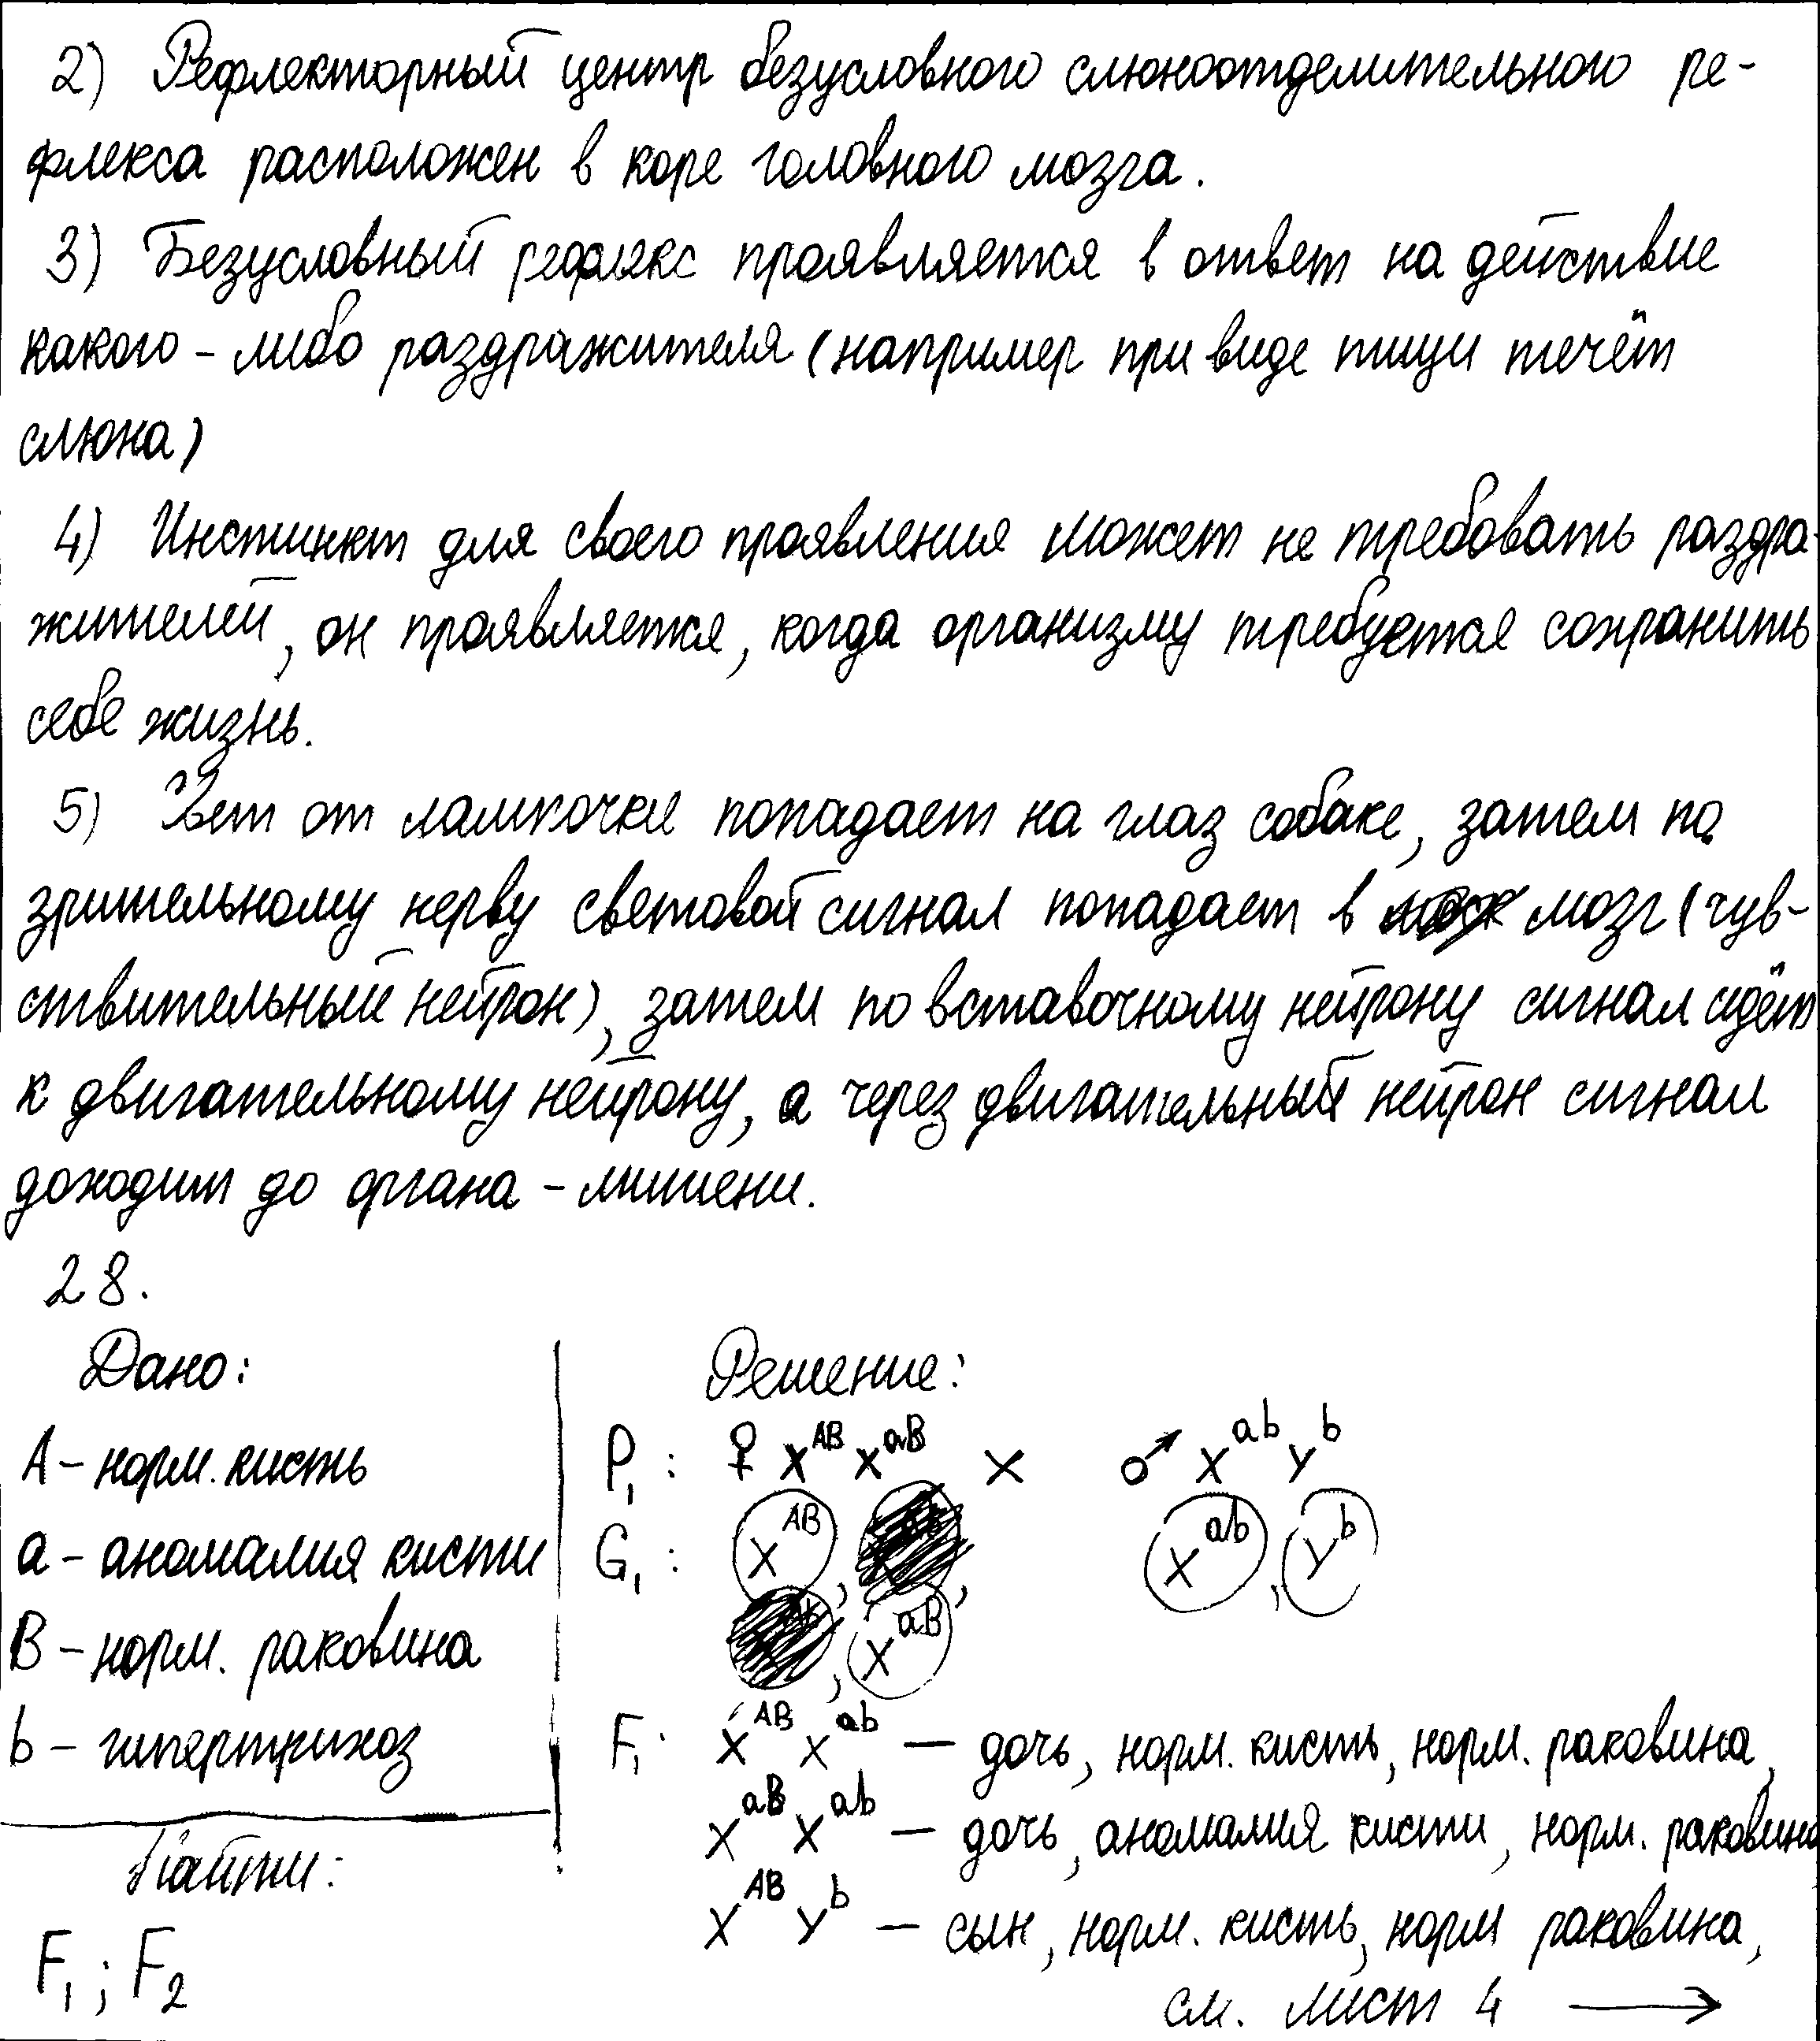 2) Рефлекторный центр безусловного слюноотделительного ре-
флекса расположен в коре головного мозга.
3) Безусловный рефлекс проявляется в ответ на действие
какого-либо раздражителя (например при виде пищи течёт
слюна)
4) Инстинкт для своего проявления может не требовать раздра-
жителей, он проявляется, когда организму требуется сохранить
себе жизнь.
5) Свет от лампочки попадает на глаз собаке, затем по
зрительному нерву световой сигнал попадает в мозг (чув-
ствительный нейрон), затем по вставочному нейрону сигнал идёт
к двигательному нейрону, а через двигательный нейрон сигнал
доходит до органа-мишени.
28.
Дано:
A - норм. кисть
a - аномалия кисти
B - норм. раковина
b - гипертрихоз
Найти:
F₁; F₂
Решение:
P₁: ♀ X^AB X^aB × ♂ X^ab Y^b
G₁: X^AB, X^ab, Y^b
, X^aB
F₁: X^AB X^ab — дочь, норм. кисть, норм. раковина,
X^aB X^ab — дочь, аномалия кисти, норм. раковина
X^AB Y^b — сын, норм. кисть, норм раковина,
см. лист 4 →